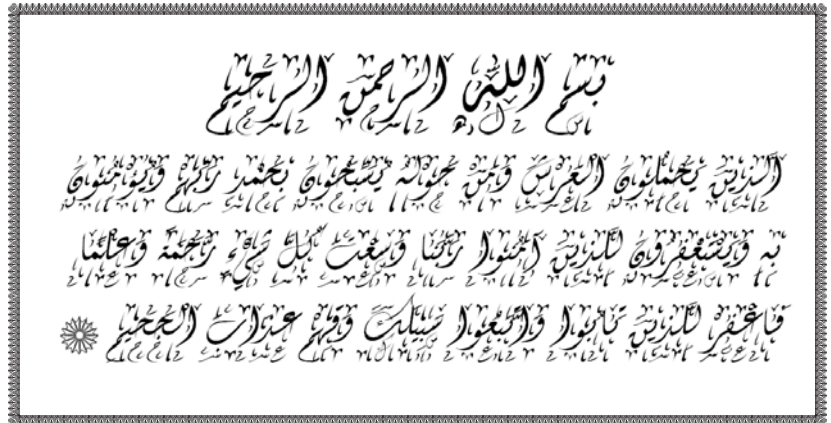 بسم الله الرحمن الرحيم
الذين يحملون العرش ومن حوله يسبحون بحمد ربهم ويؤمنون
به ويستغفرون للذين آمنوا ربنا وسعت كل شيء رحمة وعلما
فاغفر للذين تابوا واتبعوا سبيلك وقهم عذاب الجحيم